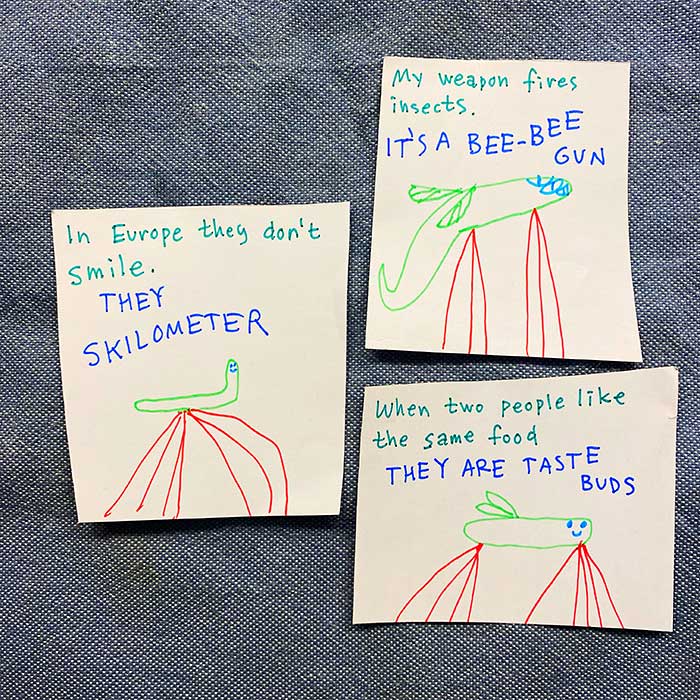 In Europe they don't
smile.
THEY
SKILOMETER
My weapon fires
insects.
IT'S A BEE-BEE
GUN
When two people like
the same food
THEY ARE TASTE
BUDS